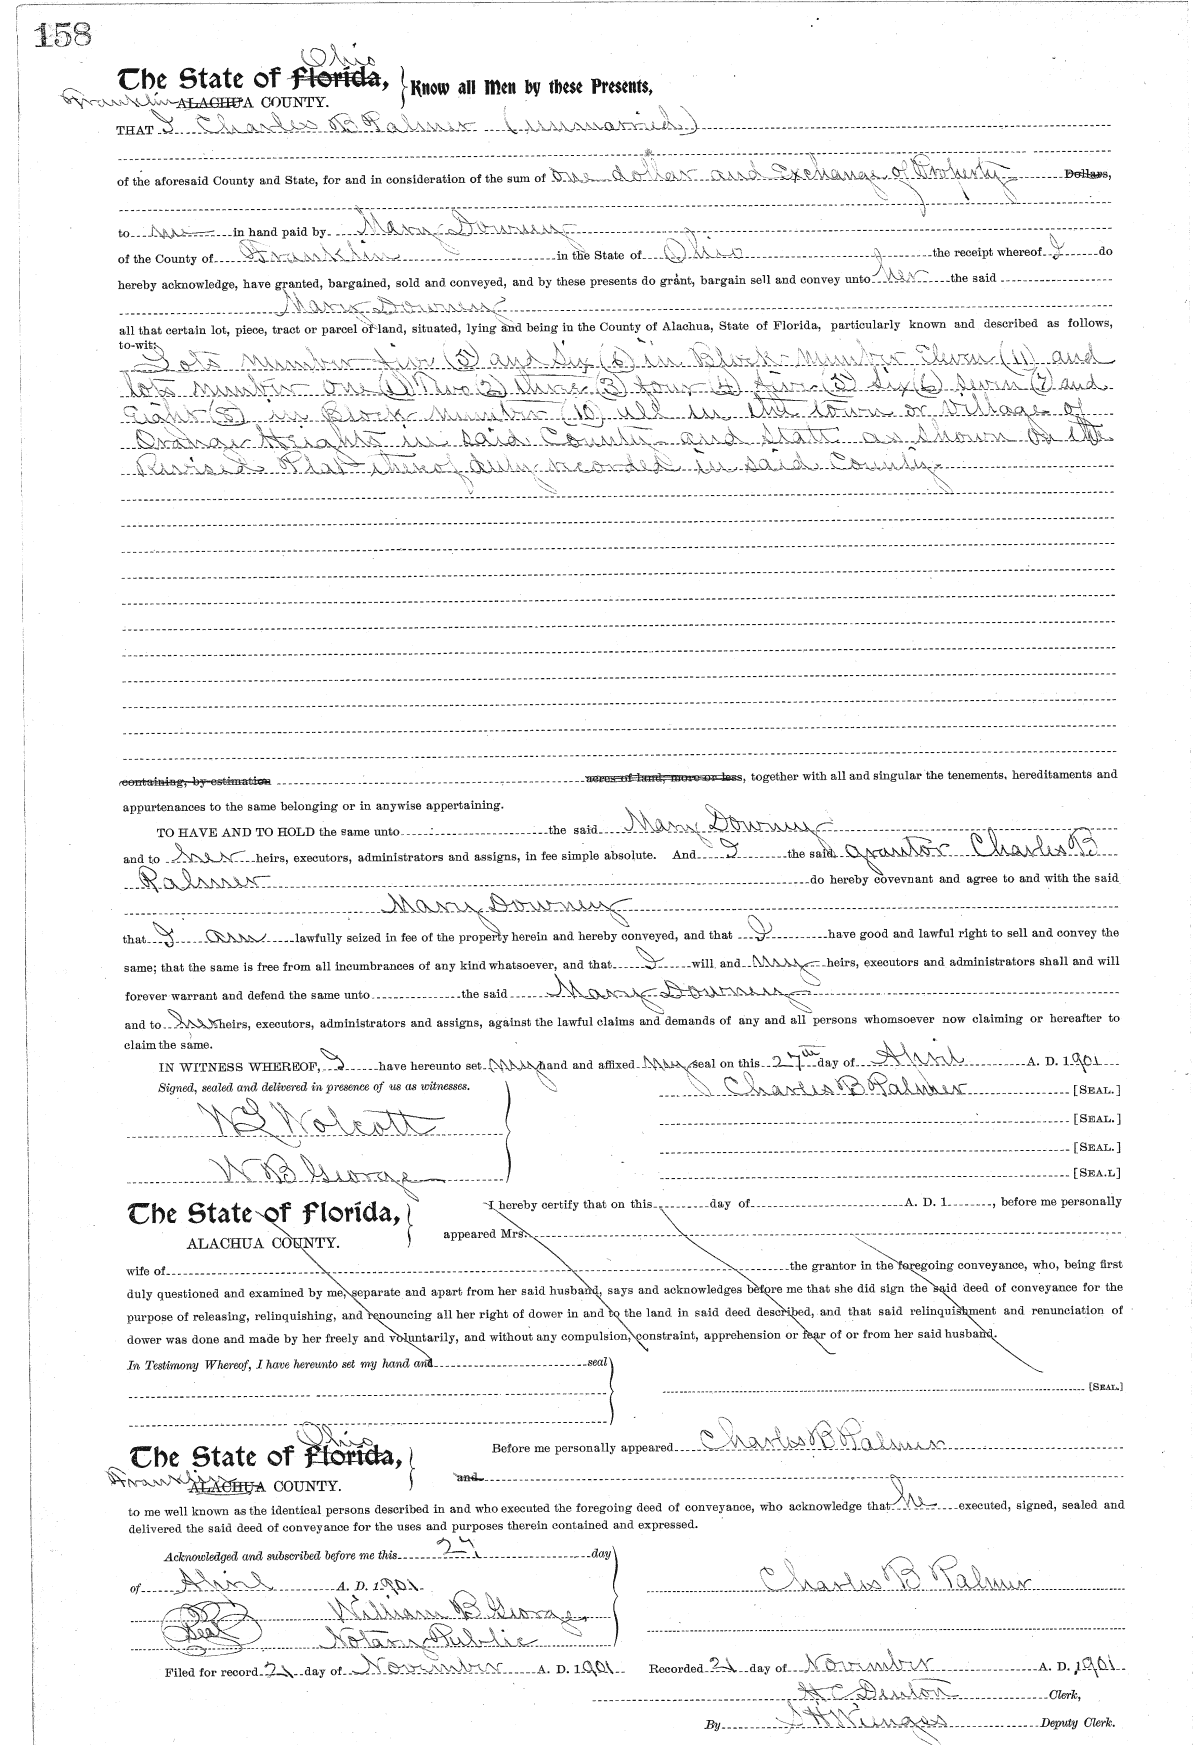 158
Ohio
The State of Florida, Know all Men by these Presents,
Franklin ALACHUA COUNTY.
THAT I Charles B Palmer (unmarried)
of the aforesaid County and State, for and in consideration of the sum of one dollar and Exchange of Property Dollars,
to me in hand paid by Mary Downey
of the County of Franklin in the State of Ohio the receipt whereof I do
hereby acknowledge, have granted, bargained, sold and conveyed, and by these presents do grant, bargain sell and convey unto her the said
Mary Downey
all that certain lot, piece, tract or parcel of land, situated, lying and being in the County of Alachua, State of Florida, particularly known and described as follows,
to-wit:
Lots number five (5) and Six (6) in Block number Eleven (11) and
lots number one (1) Two (2) three (3) four (4) five (5) Six (6) seven (7) and
Eight (8) in Block number (10) all in the town or Village of
Orange Heights in said County and State as shown on the
Revised Plat thereof duly recorded in said County
containing, by estimation acres of land, more or less, together with all and singular the tenements, hereditaments and
appurtenances to the same belonging or in anywise appertaining.
TO HAVE AND TO HOLD the same unto the said Mary Downey
and to her heirs, executors, administrators and assigns, in fee simple absolute. And I the said grantor Charles B
Palmer do hereby covevnant and agree to and with the said
Mary Downey
that I am lawfully seized in fee of the property herein and hereby conveyed, and that I have good and lawful right to sell and convey the
same; that the same is free from all incumbrances of any kind whatsoever, and that I will and my heirs, executors and administrators shall and will
forever warrant and defend the same unto the said Mary Downey
and to her heirs, executors, administrators and assigns, against the lawful claims and demands of any and all persons whomsoever now claiming or hereafter to
claim the same.
IN WITNESS WHEREOF, I have hereunto set my hand and affixed my seal on this 27th day of April A. D. 1901
Signed, sealed and delivered in presence of us as witnesses. Charles B Palmer [SEAL.]
W L Wolcott [SEAL.]
[SEAL.]
W B George [SEAL]
The State of Florida, I hereby certify that on this day of A. D. 1 , before me personally
ALACHUA COUNTY. appeared Mrs.
wife of the grantor in the foregoing conveyance, who, being first
duly questioned and examined by me, separate and apart from her said husband, says and acknowledges before me that she did sign the said deed of conveyance for the
purpose of releasing, relinquishing, and renouncing all her right of dower in and to the land in said deed described, and that said relinquishment and renunciation of
dower was done and made by her freely and voluntarily, and without any compulsion, constraint, apprehension or fear of or from her said husband.
In Testimony Whereof, I have hereunto set my hand and seal
[SEAL.]
Ohio
The State of Florida, Before me personally appeared Charles B Palmer
Franklin ALACHUA COUNTY. and
to me well known as the identical persons described in and who executed the foregoing deed of conveyance, who acknowledge that he executed, signed, sealed and
delivered the said deed of conveyance for the uses and purposes therein contained and expressed.
Acknowledged and subscribed before me this 27 day
of April A. D. 1901 Charles B Palmer
William B George
Seal Notary Public
Filed for record 21 day of November A. D. 1901 Recorded 21 day of November A. D. 1901
H C Denton Clerk,
By S H Wienges Deputy Clerk.